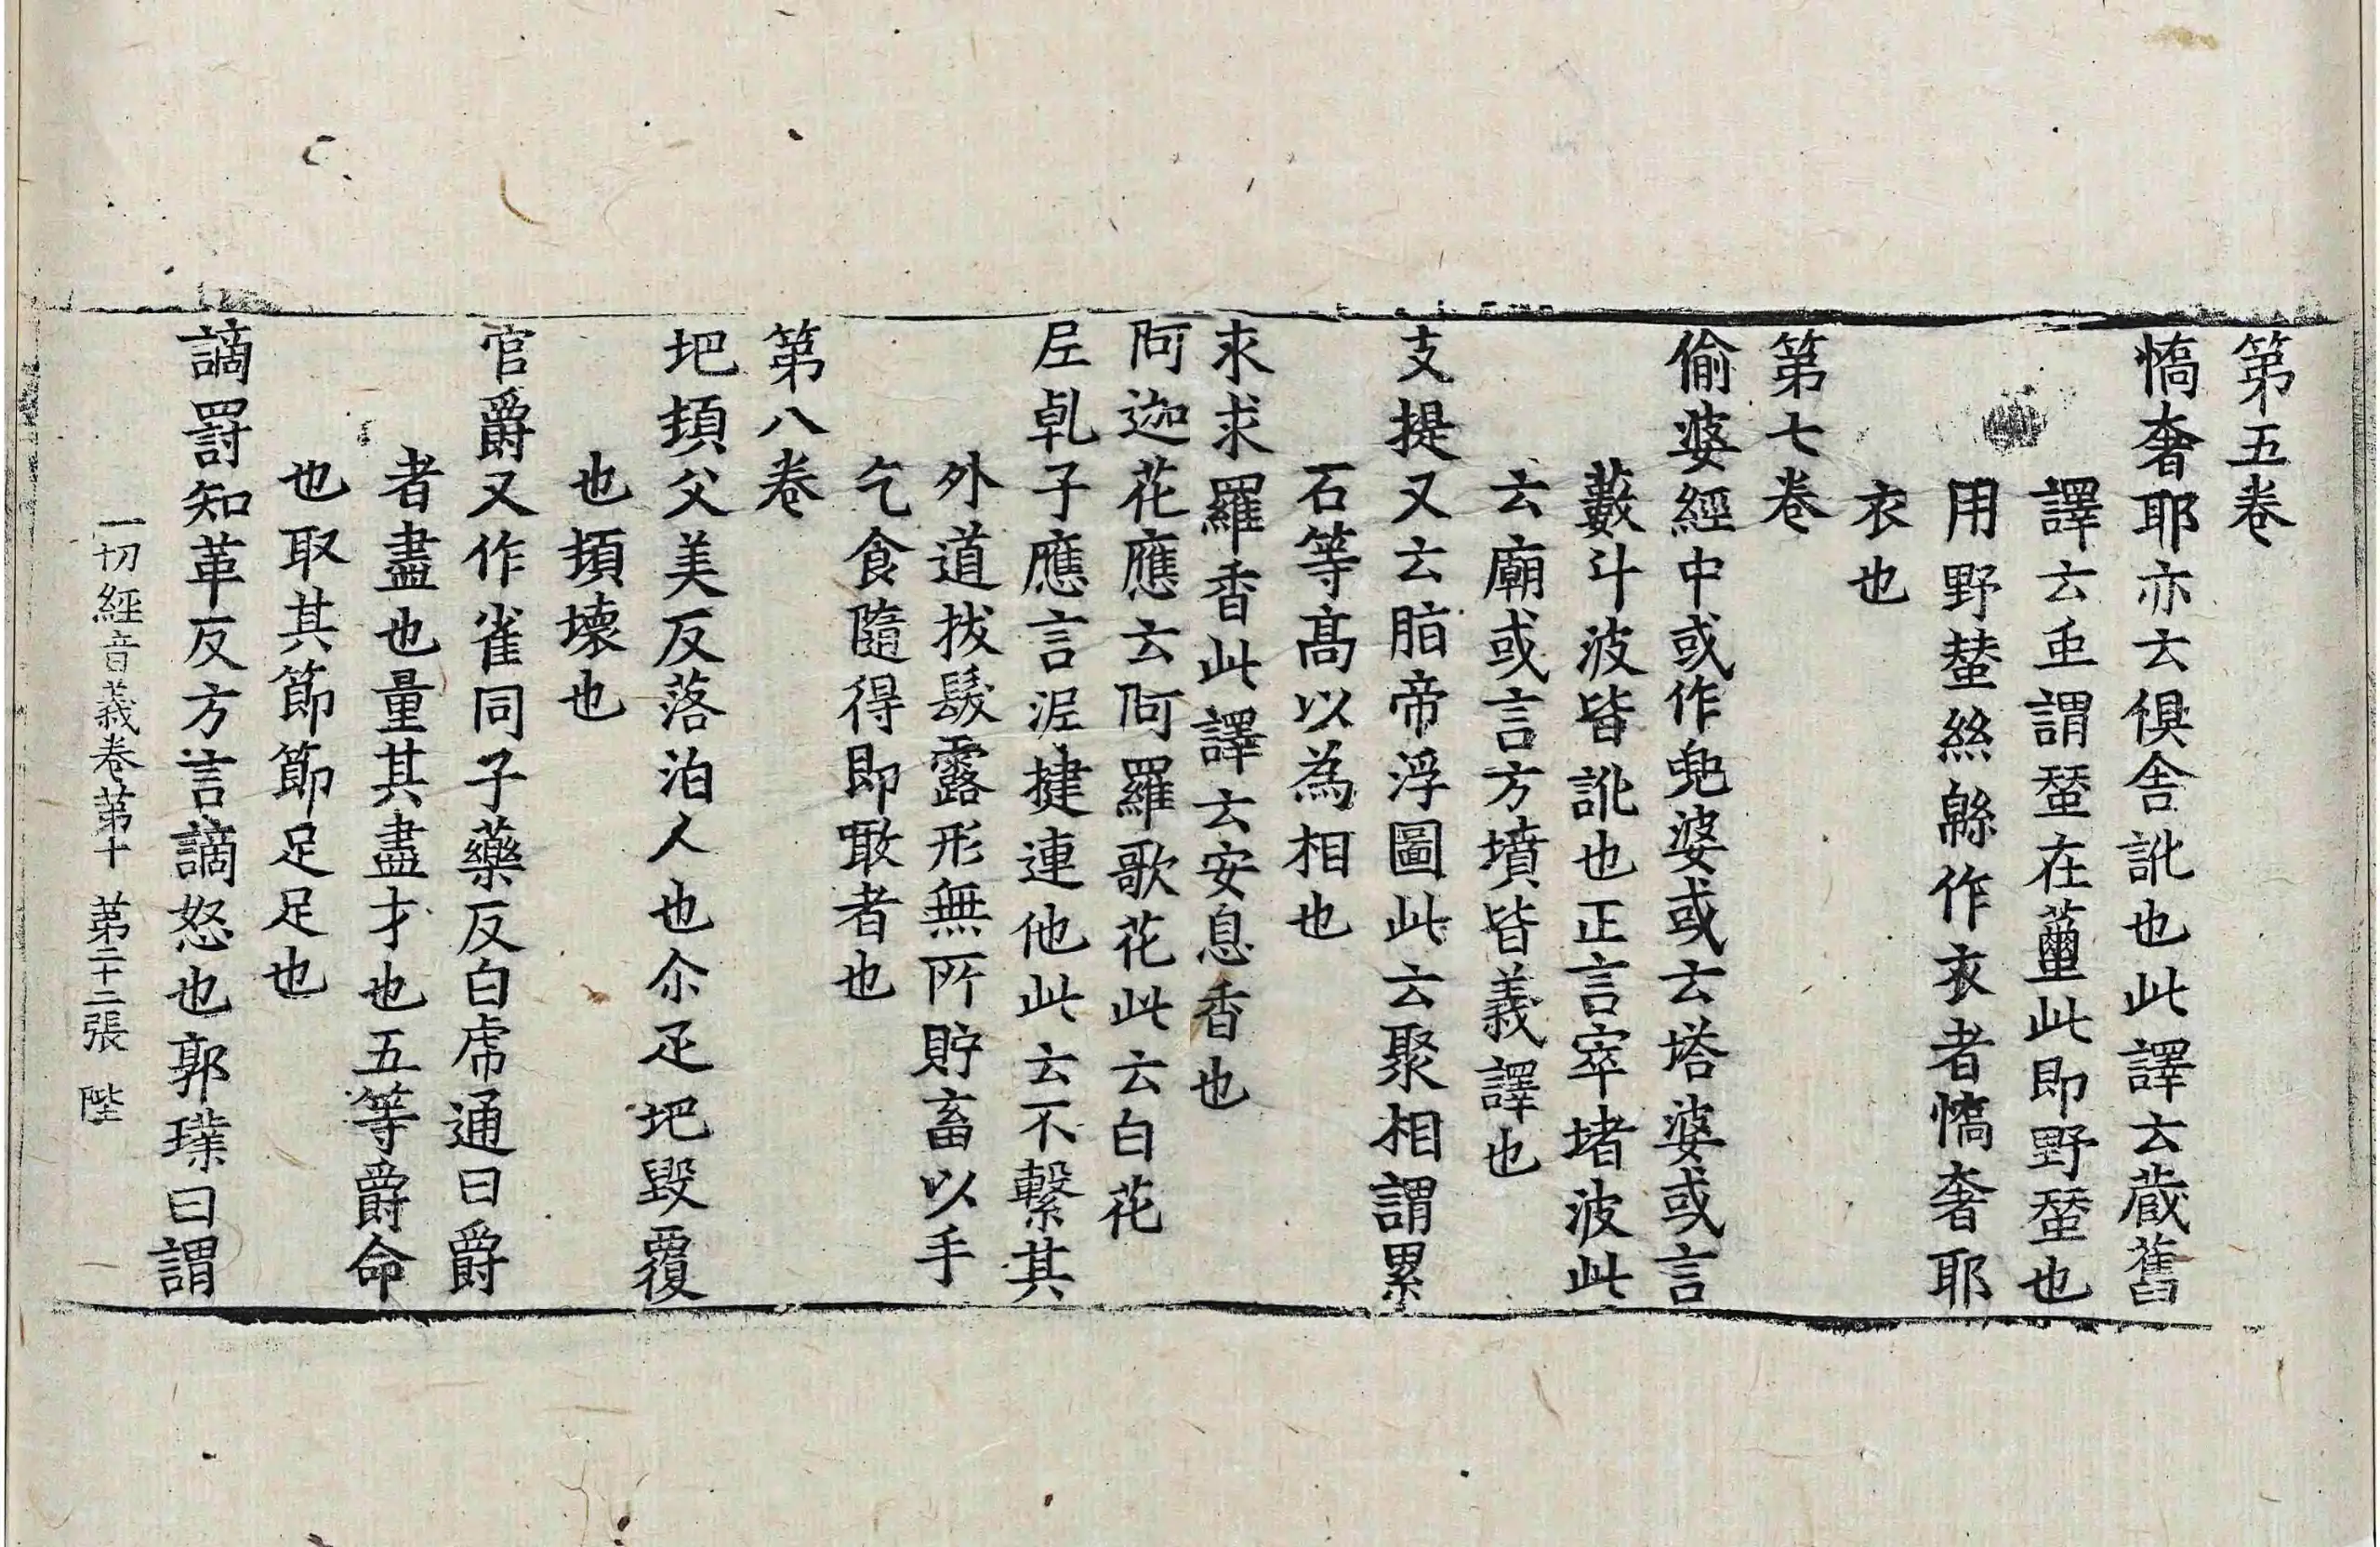 第五卷
憍奢耶亦云俱舍訛也此譯云蔵舊
譯云䖝謂蚕在蠒此即野蚕也
用野蝅絲緜作衣者憍奢耶
衣也
第七卷
偷婆經中或作兜婆或云塔婆或言
藪斗波皆訛也正言窣堵波此
云廟或言方墳皆義譯也
支提又云脂帝浮圖此云聚相謂累
石等髙以為相也
求求羅香此譯云安息香也
阿迦花應云阿羅歌花此云白花
尼乹子應言泥揵連他此云不繫其
外道拔髮露形無所貯畜以手
乞食隨得即噉者也
第八卷
圯頉父美反落泊人也尒疋圯毀覆
也頉壞也
官爵又作雀同子藥反白虎通曰爵
者盡也量其盡才也五等爵命
也取其節節足足也
謫罸知革反方言謫怒也郭璞曰謂
一切經音義卷第十 第二十二張 陛